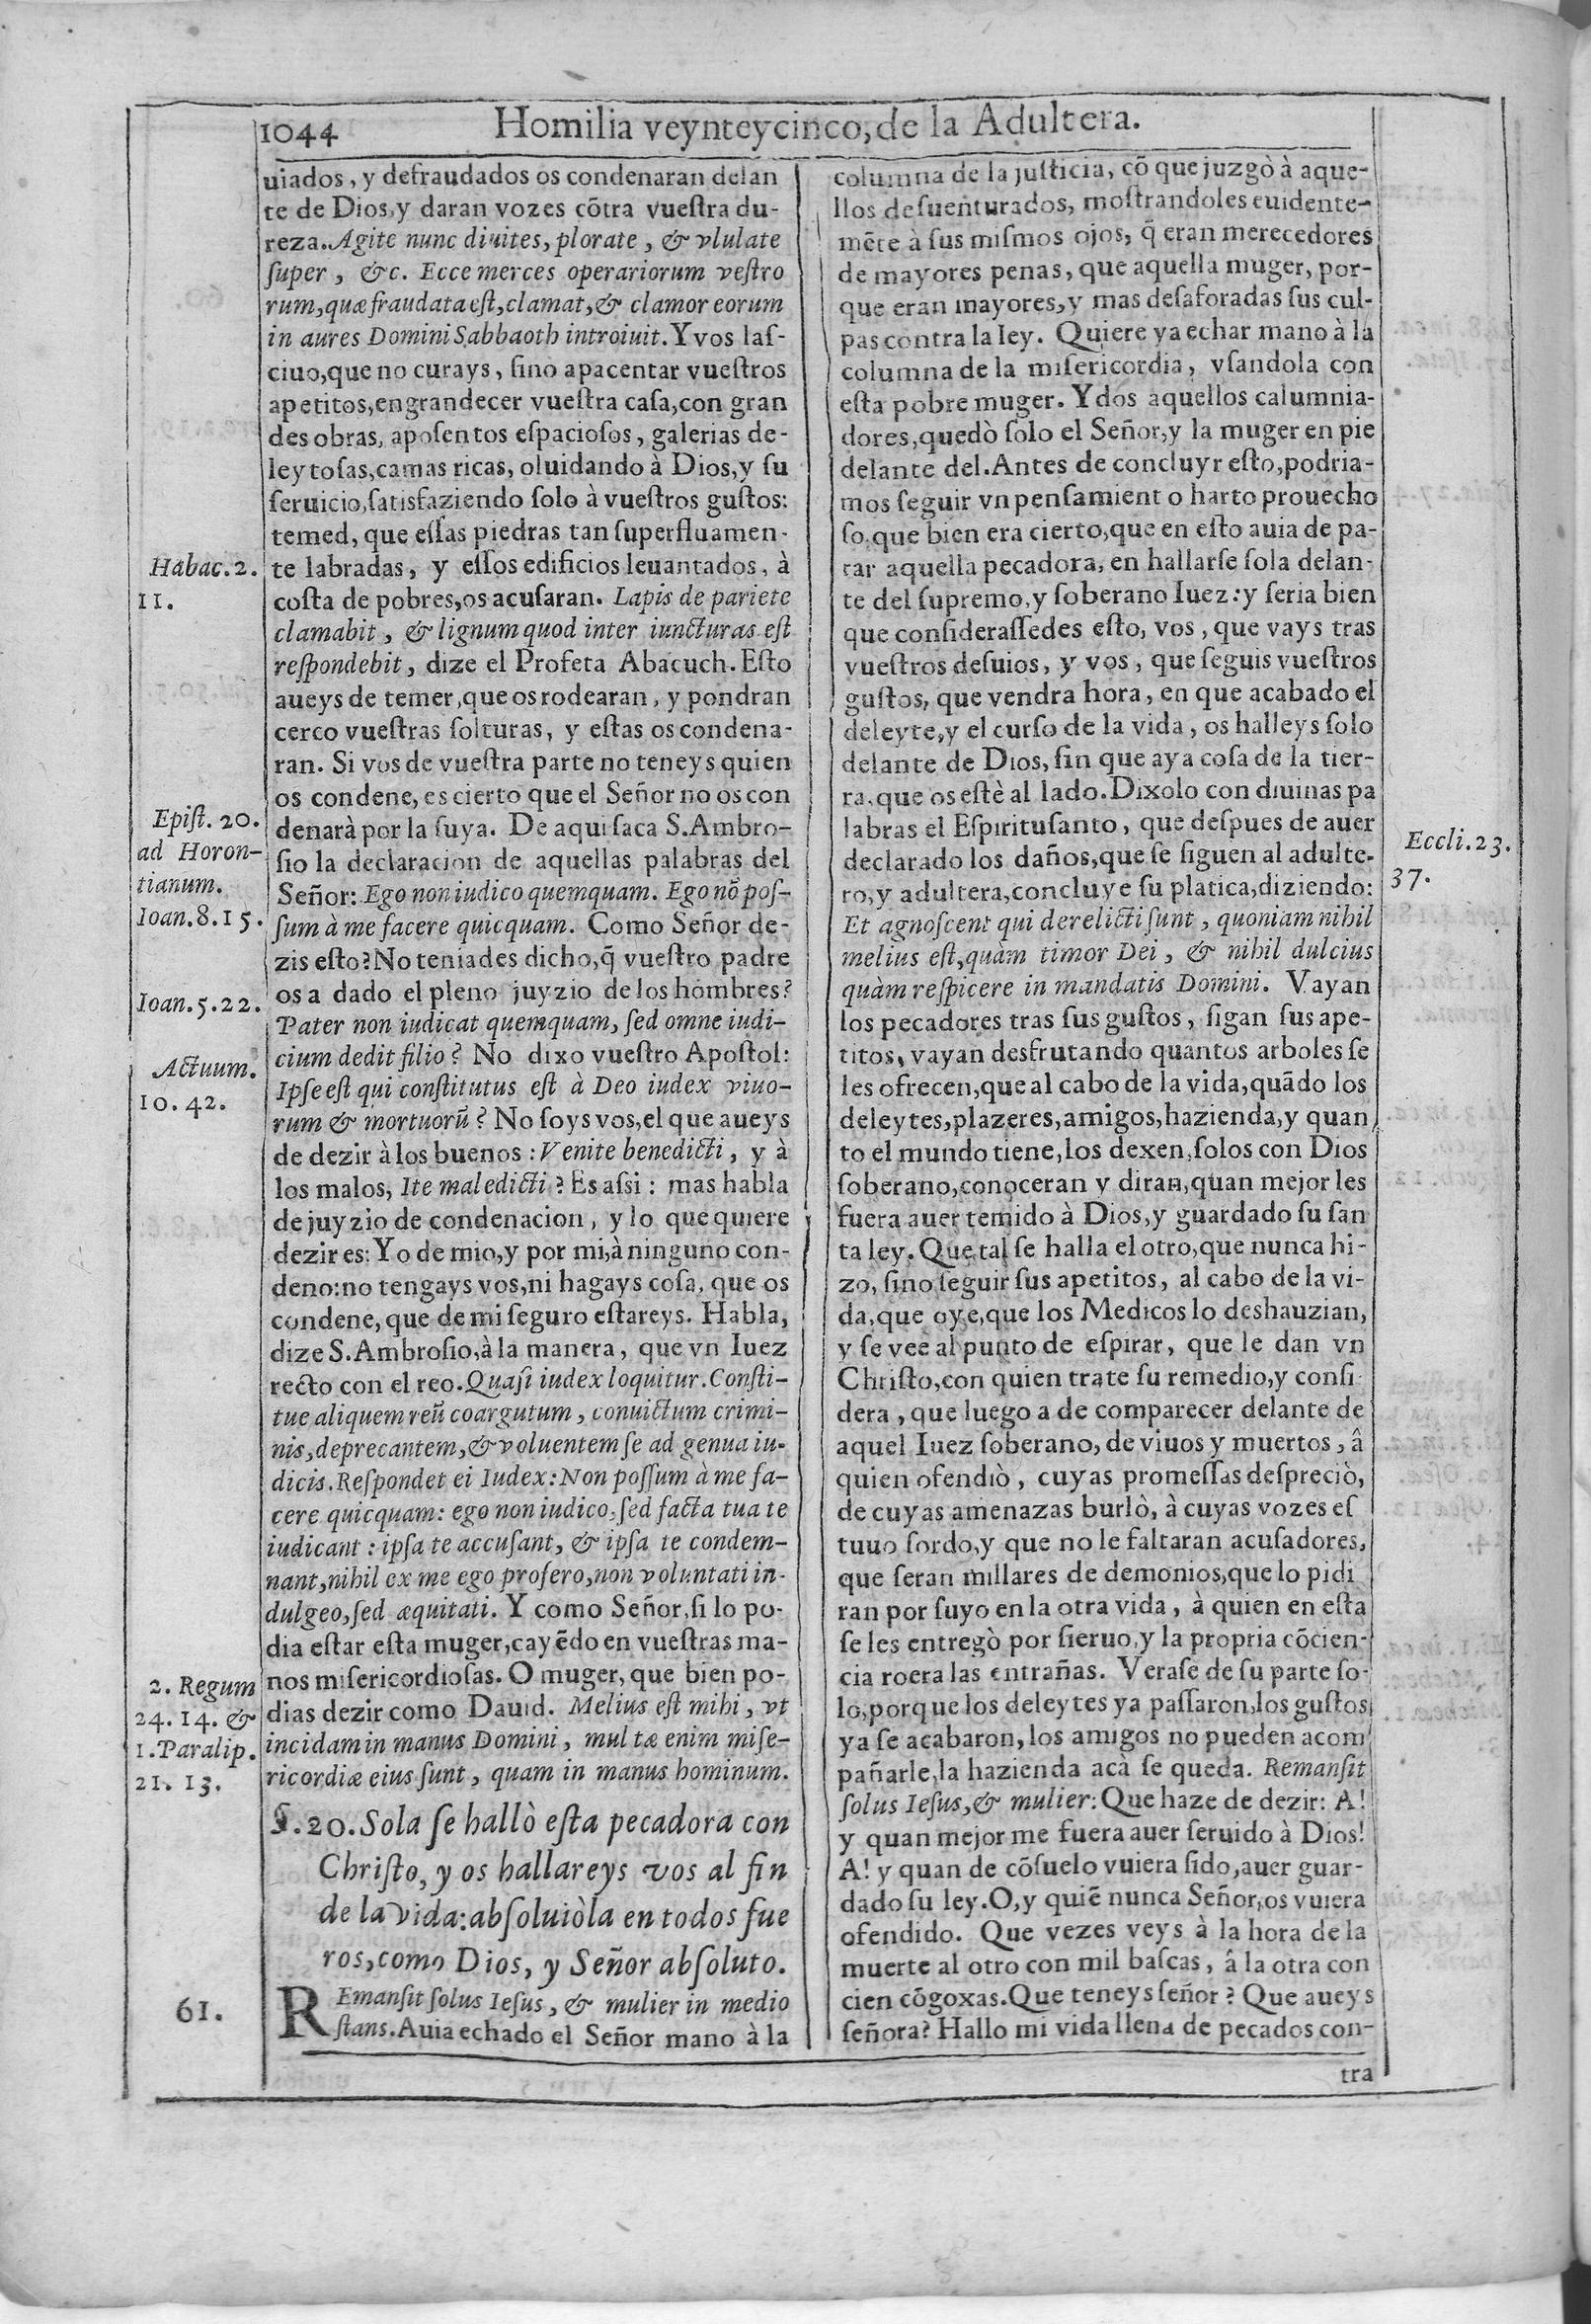 1044 Homilia veynteycinco, de la Adultera.
uiados, y defraudados os condenaran delan
te de Dios, y daran vozes cõtra vuestra du-
reza. Agite nunc diuites, plorate, & vlulate
super, &c. Ecce merces operariorum vestro
rum, quæ fraudata est, clamat, & clamor eorum
in aures Domini Sabbaoth introiuit. Y vos las-
ciuo, que no curays, sino apacentar vuestros
apetitos, engrandecer vuestra casa, con gran
des obras, aposentos espaciosos, galerias de-
leytosas, camas ricas, oluidando à Dios, y su
seruicio, satisfaziendo solo à vuestros gustos:
temed, que essas piedras tan superfluamen-
te labradas, y essos edificios leuantados, à
costa de pobres, os acusaran. Lapis de pariete
clamabit, & lignum quod inter iuncturas est
respondebit, dize el Profeta Abacuch. Esto
aueys de temer, que os rodearan, y pondran
cerco vuestras solturas, y estas os condena-
ran. Si vos de vuestra parte no teneys quien
os condene, es cierto que el Señor no os con
denarà por la suya. De aqui saca S. Ambro-
sio la declaracion de aquellas palabras del
Señor: Ego non iudico quemquam. Ego nõ pos-
sum à me facere quicquam. Como Señor de-
zis esto? No teniades dicho, q̃ vuestro padre
os a dado el pleno juyzio de los hombres?
Pater non iudicat quemquam, sed omne iudi-
cium dedit filio? No dixo vuestro Apostol:
Ipse est qui constitutus est à Deo iudex viuo-
rum & mortuorũ? No soys vos, el que aueys
de dezir à los buenos: Venite benedicti, y à
los malos, Ite maledicti? Es assi: mas habla
de juyzio de condenacion, y lo que quiere
dezir es: Yo de mio, y por mi, à ninguno con-
deno: no tengays vos, ni hagays cosa, que os
condene, que de mi seguro estareys. Habla,
dize S. Ambrosio, à la manera, que vn Iuez
recto con el reo. Quasi iudex loquitur. Consti-
tue aliquem reũ coargutum, conuictum crimi-
nis, deprecantem, & voluentem se ad genua iu-
dicis. Respondet ei Iudex: Non possum à me fa-
cere quicquam: ego non iudico, sed facta tua te
iudicant: ipsa te accusant, & ipsa te condem-
nant, nihil ex me ego profero, non voluntati in-
dulgeo, sed æquitati. Y como Señor, si lo po-
dia estar esta muger, cayẽdo en vuestras ma-
nos misericordiosas. O muger, que bien po-
dias dezir como Dauid. Melius est mihi, vt
incidam in manus Domini, multæ enim mise-
ricordiæ eius sunt, quam in manus hominum.
§. 20. Sola se hallò esta pecadora con
Christo, y os hallareys vos al fin
de la vida: absoluiòla en todos fue
ros, como Dios, y Señor absoluto.
REmansit solus Iesus, & mulier in medio
stans. Auia echado el Señor mano à la
Habac. 2.
11.
Epist. 20.
ad Horon-
tianum.
Ioan. 8. 15.
Ioan. 5. 22.
Actuum.
10. 42.
2. Regum
24. 14. &
1. Paralip.
21. 13.
61.
columna de la justicia, cõ que juzgò à aque-
llos desuenturados, mostrandoles euidente-
mẽte à sus mismos ojos, q̃ eran merecedores
de mayores penas, que aquella muger, por-
que eran mayores, y mas desaforadas sus cul-
pas contra la ley. Quiere ya echar mano à la
columna de la misericordia, vsandola con
esta pobre muger. Ydos aquellos calumnia-
dores, quedò solo el Señor, y la muger en pie
delante del. Antes de concluyr esto, podria-
mos seguir vn pensamiento harto prouecho
so, que bien era cierto, que en esto auia de pa-
rar aquella pecadora, en hallarse sola delan-
te del supremo, y soberano Iuez: y seria bien
que considerassedes esto, vos, que vays tras
vuestros desuios, y vos, que seguis vuestros
gustos, que vendra hora, en que acabado el
deleyte, y el curso de la vida, os halleys solo
delante de Dios, sin que aya cosa de la tier-
ra, que os estè al lado. Dixolo con diuinas pa
labras el Espiritusanto, que despues de auer
declarado los daños, que se siguen al adulte-
ro, y adultera, concluye su platica, diziendo:
Et agnoscent qui derelicti sunt, quoniam nihil
melius est, quàm timor Dei, & nihil dulcius
quàm respicere in mandatis Domini. Vayan
los pecadores tras sus gustos, sigan sus ape-
titos, vayan desfrutando quantos arboles se
les ofrecen, que al cabo de la vida, quãdo los
deleytes, plazeres, amigos, hazienda, y quan
to el mundo tiene, los dexen, solos con Dios
soberano, conoceran y diran, quan mejor les
fuera auer temido à Dios, y guardado su san
ta ley. Que tal se halla el otro, que nunca hi-
zo, sino seguir sus apetitos, al cabo de la vi-
da, que oye, que los Medicos lo deshauzian,
y se vee al punto de espirar, que le dan vn
Christo, con quien trate su remedio, y consi
dera, que luego a de comparecer delante de
aquel Iuez soberano, de viuos y muertos, â
quien ofendiò, cuyas promessas despreciò,
de cuyas amenazas burlò, à cuyas vozes es
tuuo sordo, y que no le faltaran acusadores,
que seran millares de demonios, que lo pidi
ran por suyo en la otra vida, à quien en esta
se les entregò por sieruo, y la propria cõcien-
cia roera las entrañas. Verase de su parte so-
lo, porque los deleytes ya passaron, los gustos
ya se acabaron, los amigos no pueden acom
pañarle, la hazienda acà se queda. Remansit
solus Iesus, & mulier: Que haze de dezir: A!
y quan mejor me fuera auer seruido à Dios!
A! y quan de cõsuelo vuiera sido, auer guar-
dado su ley. O, y quiẽ nunca Señor, os vuiera
ofendido. Que vezes veys à la hora de la
muerte al otro con mil bascas, â la otra con
cien cõgoxas. Que teneys señor? Que aueys
señora? Hallo mi vida llena de pecados con-
tra
Eccli. 23.
37.